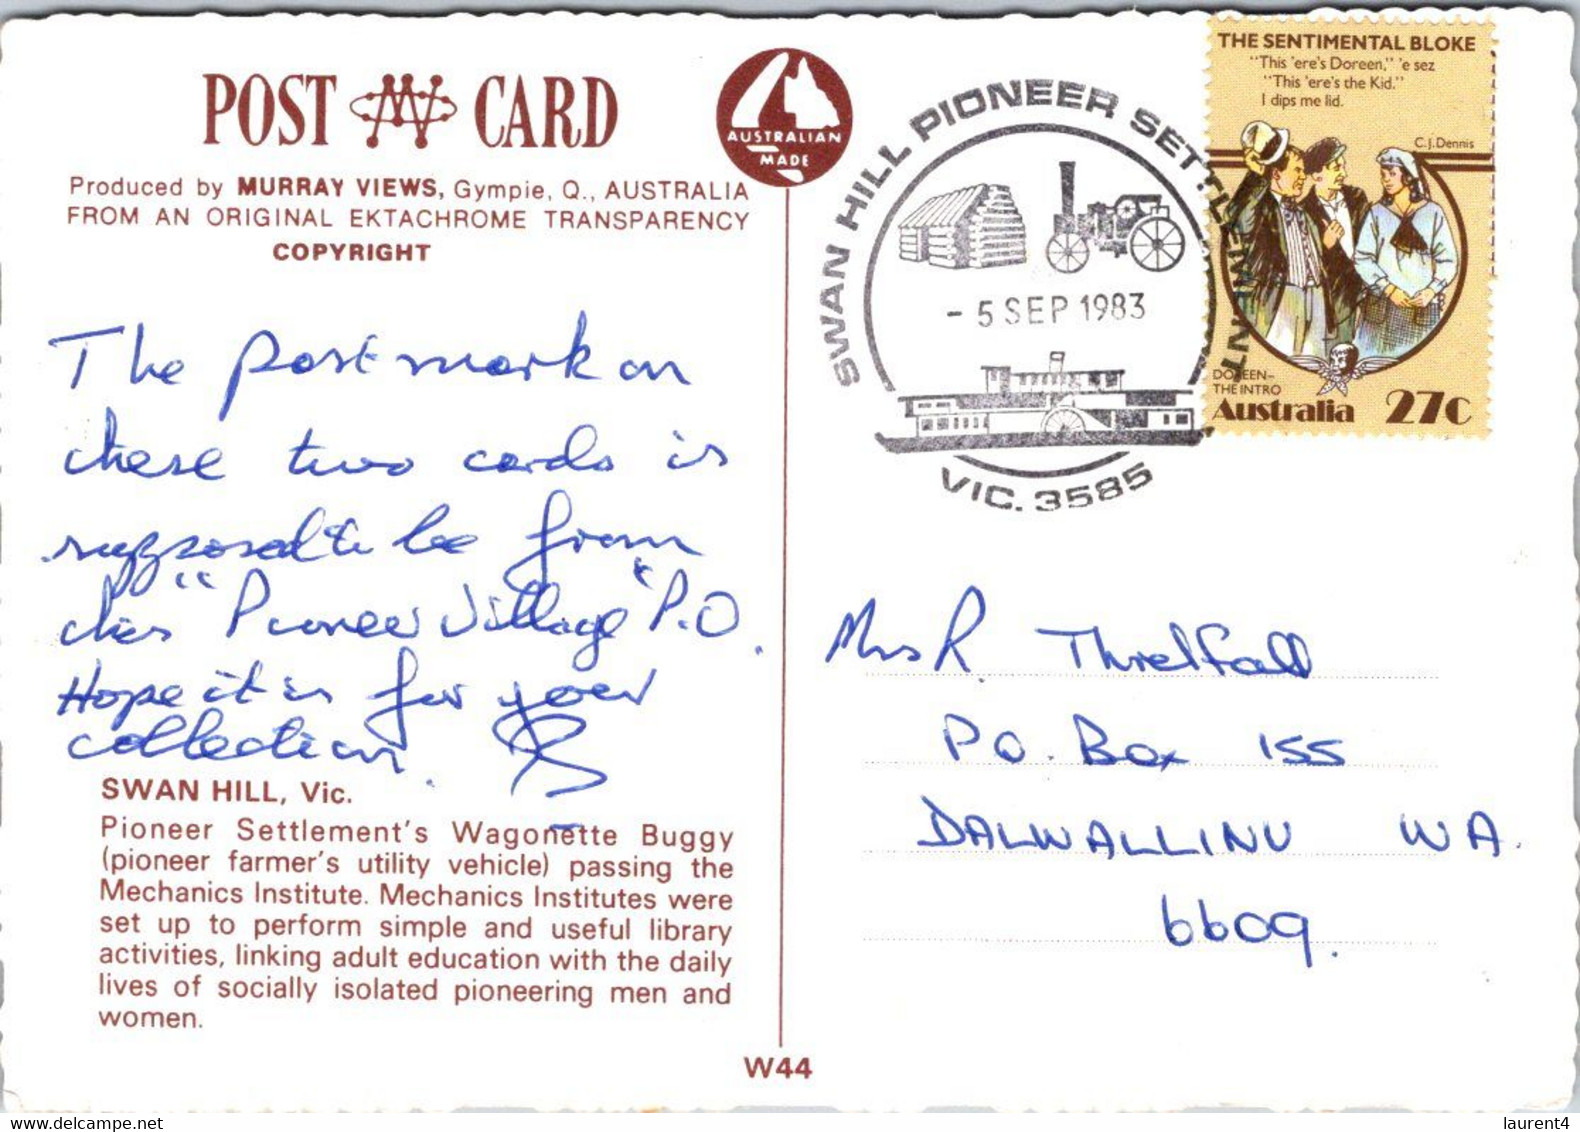 POST CARD
AUSTRALIAN
MADE
Produced by MURRAY VIEWS, Gympie, Q., AUSTRALIA
FROM AN ORIGINAL EKTACHROME TRANSPARENCY
COPYRIGHT
The postmark on
these two cards is
supposed to be from
the "Pioneer Village" P.O.
Hope it is for your
collection.
SWAN HILL, Vic.
Pioneer Settlement's Wagonette Buggy
(pioneer farmer's utility vehicle) passing the
Mechanics Institute. Mechanics Institutes were
set up to perform simple and useful library
activities, linking adult education with the daily
lives of socially isolated pioneering men and
women.
W44
SWAN HILL PIONEER SETTLEMENT
- 5 SEP 1983
VIC. 3585
THE SENTIMENTAL BLOKE
"This 'ere's Doreen," 'e sez
"This 'ere's the Kid."
I dips me lid.
C.J.Dennis
DOREEN-
THE INTRO
Australia 27c
Mrs R Threlfall
PO. Box 155
DALWALLINU WA.
6609.
laurent4